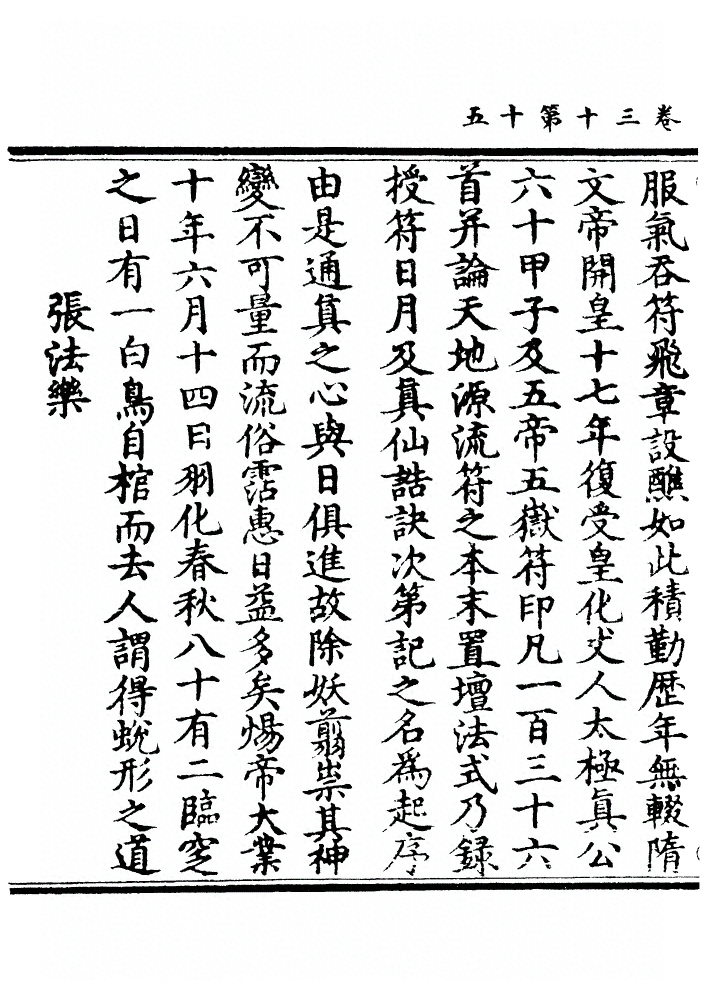 卷三十第十五
服氣吞符飛章設醮如此積勤歷年無輟隋
文帝開皇十七年復受皇化丈人太極眞公
六十甲子及五帝五嶽符印凡一百三十六
首并論天地源流符之本末置壇法式乃録
授符日月及眞仙誥訣次第記之名爲起序
由是通眞之心與日俱進故除妖翦祟其神
變不可量而流俗霑惠日益多矣煬帝大業
十年六月十四日羽化春秋八十有二臨窆
之日有一白鳥自棺而去人謂得蛻形之道
張法樂